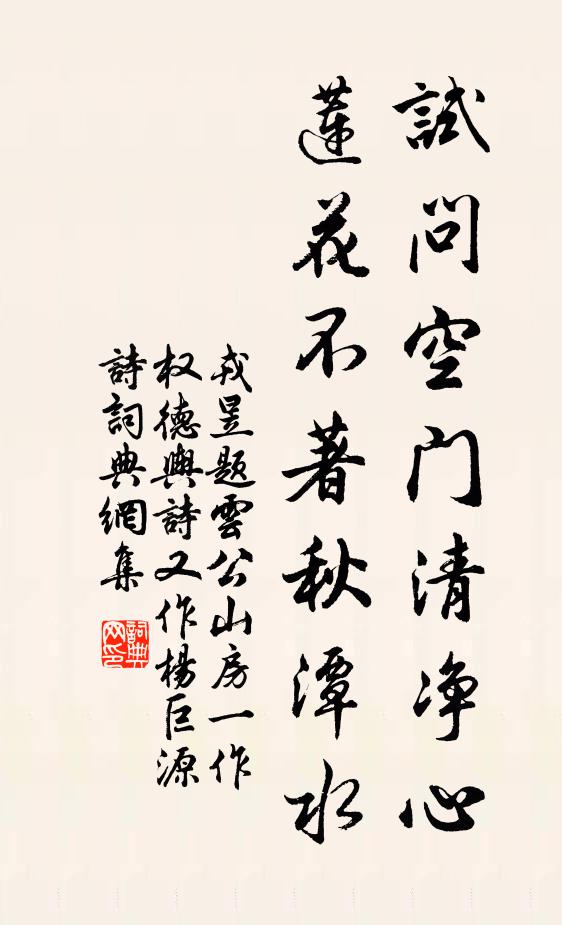 試問空門清净心
蓮花不著秋潭水
戎昱題雲公山房一作
权德輿詩又作楊巨源
詩詞典網集
詞典
网印